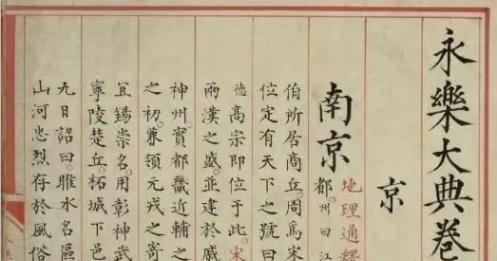 永樂大典卷
京
南京
地理通釋
都。州曰江
伯所居商丘。周爲宋
位定有天下之號曰
德高宗即位于此。宋
兩漢之盛。並建於戚
神州實都畿近輔之
之初。兼領元戎之寄
宜錫崇名。用彰神武
寧陵楚丘。柘城下邑
九日詔曰。睢水名區
山河忠烈存於風俗